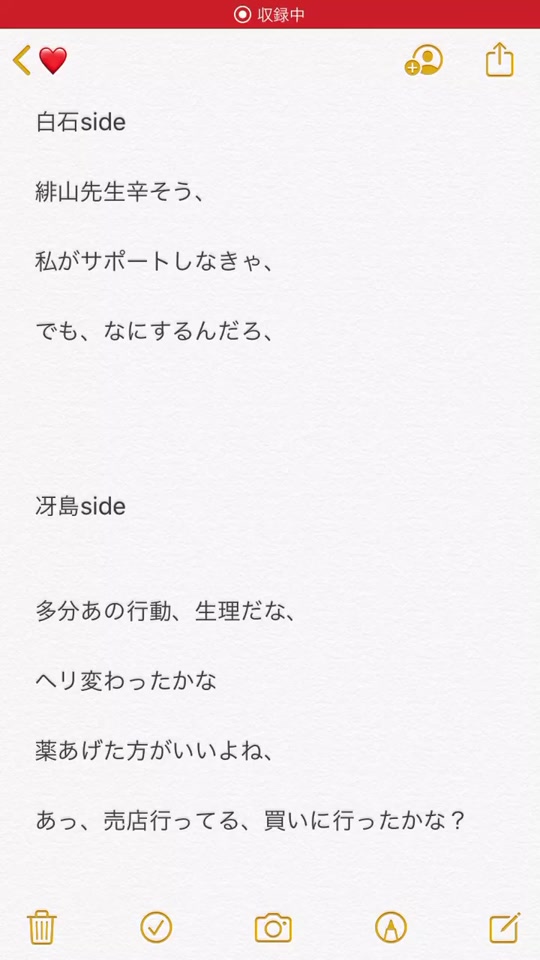 収録中
白石side
緋山先生辛そう、
私がサポートしなきゃ、
でも、なにするんだろ、
冴島side
多分あの行動、生理だな、
ヘリ変わったかな
薬あげた方がいいよね、
あっ、売店行ってる、買いに行ったかな？